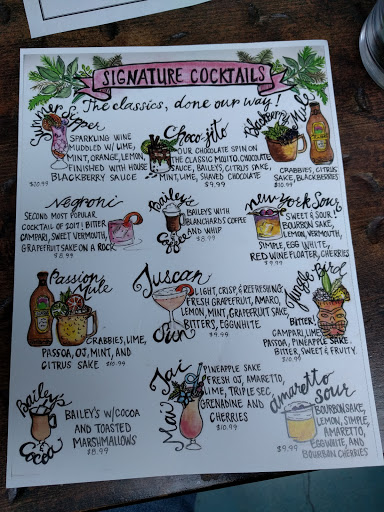 SIGNATURE COCKTAILS
The classics, done our way!
Summer Sipper
SPARKLING WINE
MUDDLED W/ LIME,
MINT, ORANGE, LEMON,
FINISHED WITH HOUSE
BLACKBERRY SAUCE
$10.99
Chocojito
OUR CHOCOLATE SPIN ON
THE CLASSIC MOJITO. CHOCOLATE
SAUCE, BAILEYS, CITRUS SAKE,
MINT, LIME, SHAVED CHOCOLATE
$9.99
Blackberry Mule
CRABBIES, CITRUS
SAKE, BLACKBERRIES
$10.99
Negroni
SECOND MOST POPULAR
COCKTAIL OF 2017! BITTER
CAMPARI, SWEET VERMOUTH,
GRAPEFRUIT SAKE ON A ROCK
$8.99
Bailey's & Coffee
BAILEYS WITH
BLANCHARDS COFFEE
AND WHIP
$8.99
New York Sour
SWEET & SOUR!
BOURBON SAKE,
LEMON, VERMOUTH,
SIMPLE, EGG WHITE,
RED WINE FLOATER, CHERRIES
$9.99
Passion Mule
CRABBIES, LIME,
PASSOA, OJ, MINT, AND
CITRUS SAKE
$10.99
Tuscan Sun
LIGHT, CRISP, & REFRESHING
FRESH GRAPEFRUIT, AMARO,
LEMON, MINT, GRAPEFRUIT SAKE,
BITTERS, EGGWHITE
$9.99
Jungle Bird
BITTER!
CAMPARI, LIME,
PASSOA, PINEAPPLE SAKE.
BITTER, SWEET & FRUITY.
$10.99
Bailey's & Cocoa
BAILEY'S W/COCOA
AND TOASTED
MARSHMALLOWS
$8.99
Mai Tai
PINEAPPLE SAKE
FRESH OJ, AMARETTO,
LIME, TRIPLE SEC,
GRENADINE AND
CHERRIES
$10.99
amaretto sour
BOURBON SAKE,
LEMON, SIMPLE,
AMARETTO,
EGGWHITE, AND
BOURBON CHERRIES
$9.99